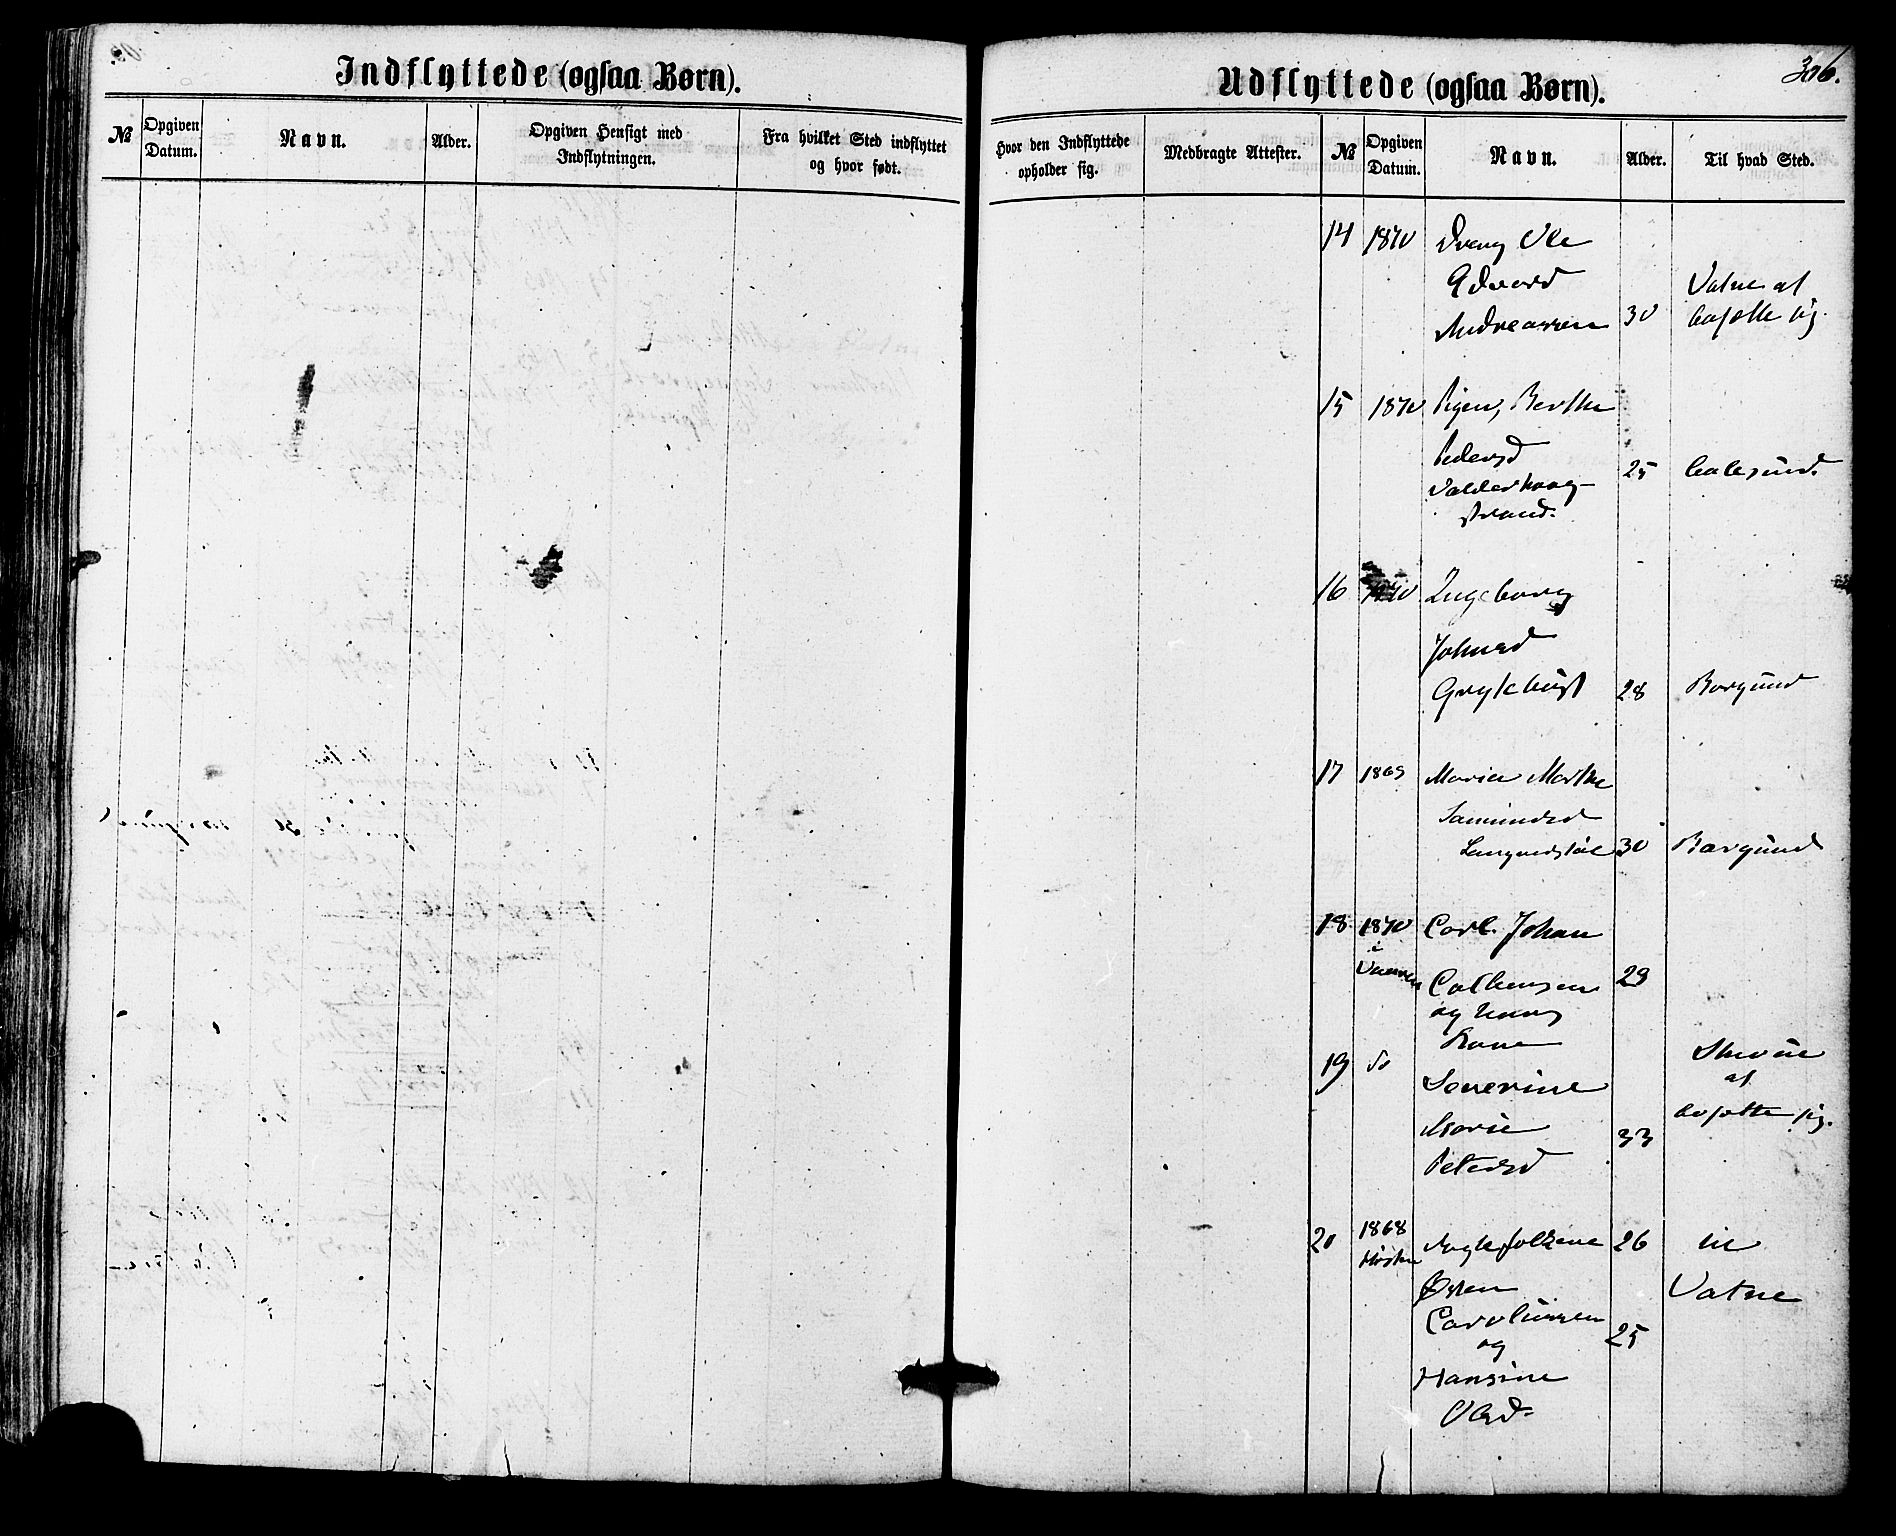 Indflyttede (ogsaa Børn).
№
Opgiven Datum.
Navn.
Alder.
Opgiven Hensigt med Indflytningen.
Fra hvilket Sted indflyttet og hvor født.
Udflyttede (ogsaa Børn).
306.
Hvor den Indflyttede opholder sig.
Medbragte Attester.
№
Opgiven Datum.
Navn.
Alder.
Til hvad Sted.
14 1870 Dreng Ole
Edvard Vatne at
Andreassen 30 bosætte sig.
15 1870 Pigen, Berthe
Pedersd 25 Aalesund.
Valderhoug-
strand.
16 1870 Ingeborg
Johnsd
Grytehust 28 Borgund
17 1869 Marie Marthe
Samundsd
30 Borgund
18 1870 Carl Johan
i
Vaaren 29
og hans
Kone
19 do Skodie
Severine at
bosætte sig.
Marie 33
Petersd
20 1868 Ægtefolkene 26 til
Høsten
Østen Vatne
Carolussen 25
og
Hansine
Olsd.